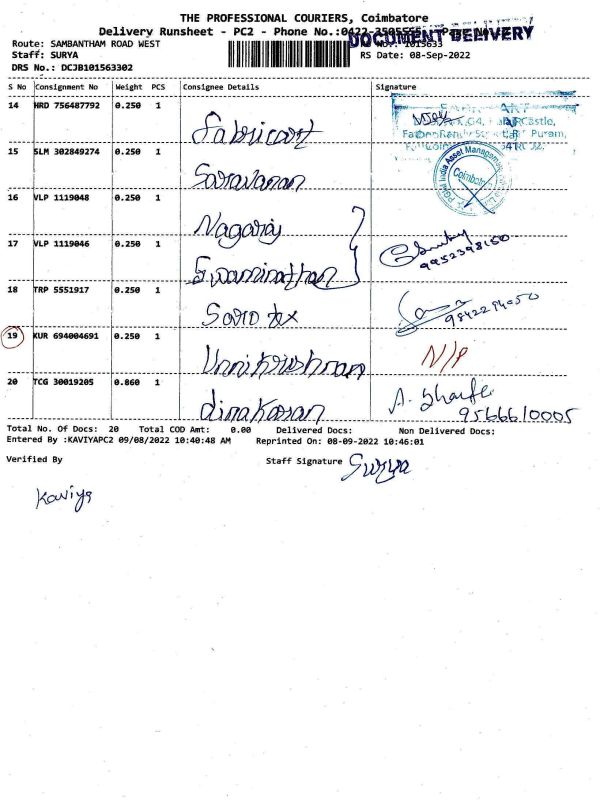 THE PROFESSIONAL COURIERS, Coimbatore
Delivery Runsheet - PC2 - Phone No.:0422-
DOCUMENT DELIVERY
Route: SAMBANTHAM ROAD WEST
Staff: SURYA RS Date: 08-Sep-2022
DRS No.: DCJB101563302
S No Consignment No Weight PCS Consignee Details Signature
14 HRD 756487792 0.250 1 Fabricart
15 SLM 302849274 0.250 1 Saravanan
PGIM India Asset Management
Coimbatore
16 VLP 1119048 0.250 1 Nagaraj
17 VLP 1119046 0.250 1 Swaminathan 9952398150
18 TRP 5551917 0.250 1 Saro tex 9842294050
19 KUR 694004691 0.250 1 Unnikrishnan N/P
20 TCG 30019205 0.860 1 dinakaran 9566610005
Total No. Of Docs: 20 Total COD Amt: 0.00 Delivered Docs: Non Delivered Docs:
Entered By :KAVIYAPC2 09/08/2022 10:40:48 AM Reprinted On: 08-09-2022 10:46:01
Verified By Staff Signature Surya
Kaviya